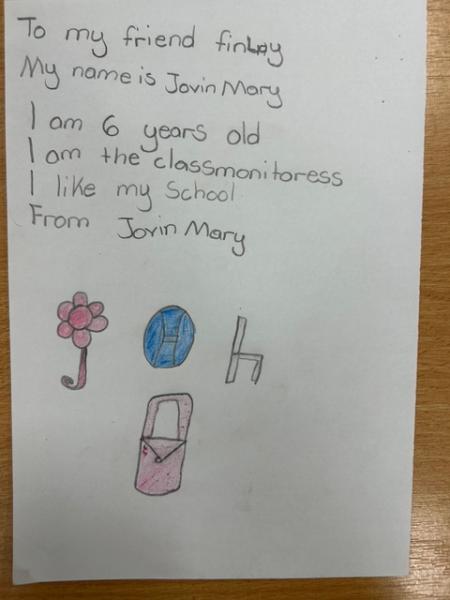 To my friend finlay
My name is Jovin Mary
I am 6 years old
I am the classmonitoress
I like my School
From Jovin Mary